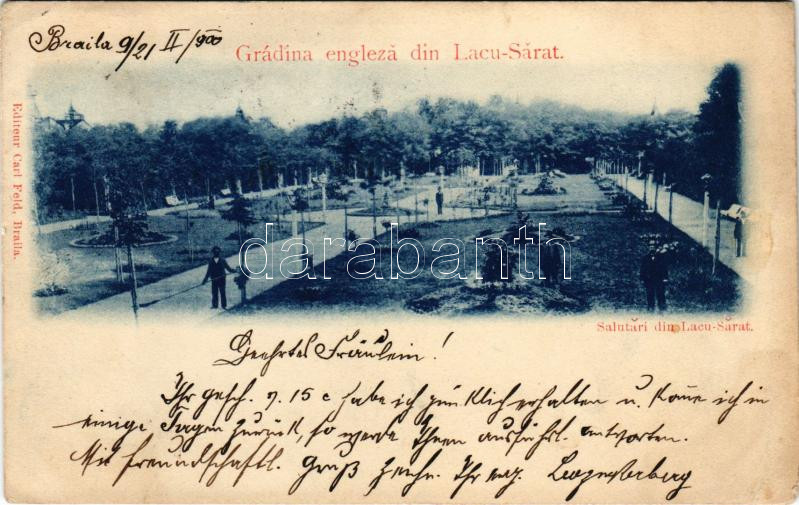 Braila 9/21 II/900
Grádina engleză din Lacu-Sărat.
Editeur Carl Feld, Braila.
darabanth
Salutări din Lacu-Sărat.
Geehrtes Fräulein!
Ihr gesch. v. 15 c habe ich pünklich erhalten u. kome ich in
einige Tagen zurück, so werde Ihnen ausführl. antworten.
Mit freundschaftl. Gruß zeichn. Ihr erg.